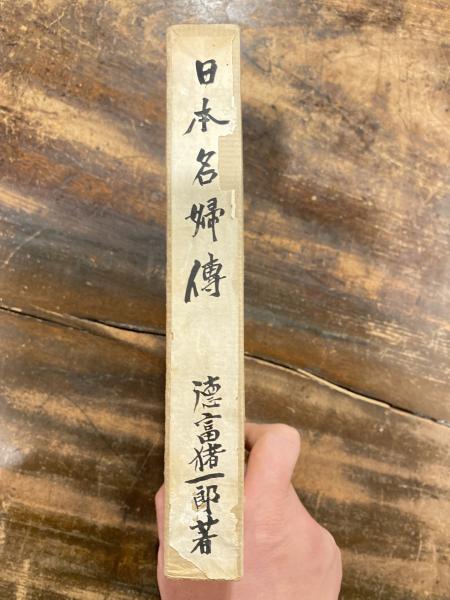 日本名婦傳
德富猪一郎著